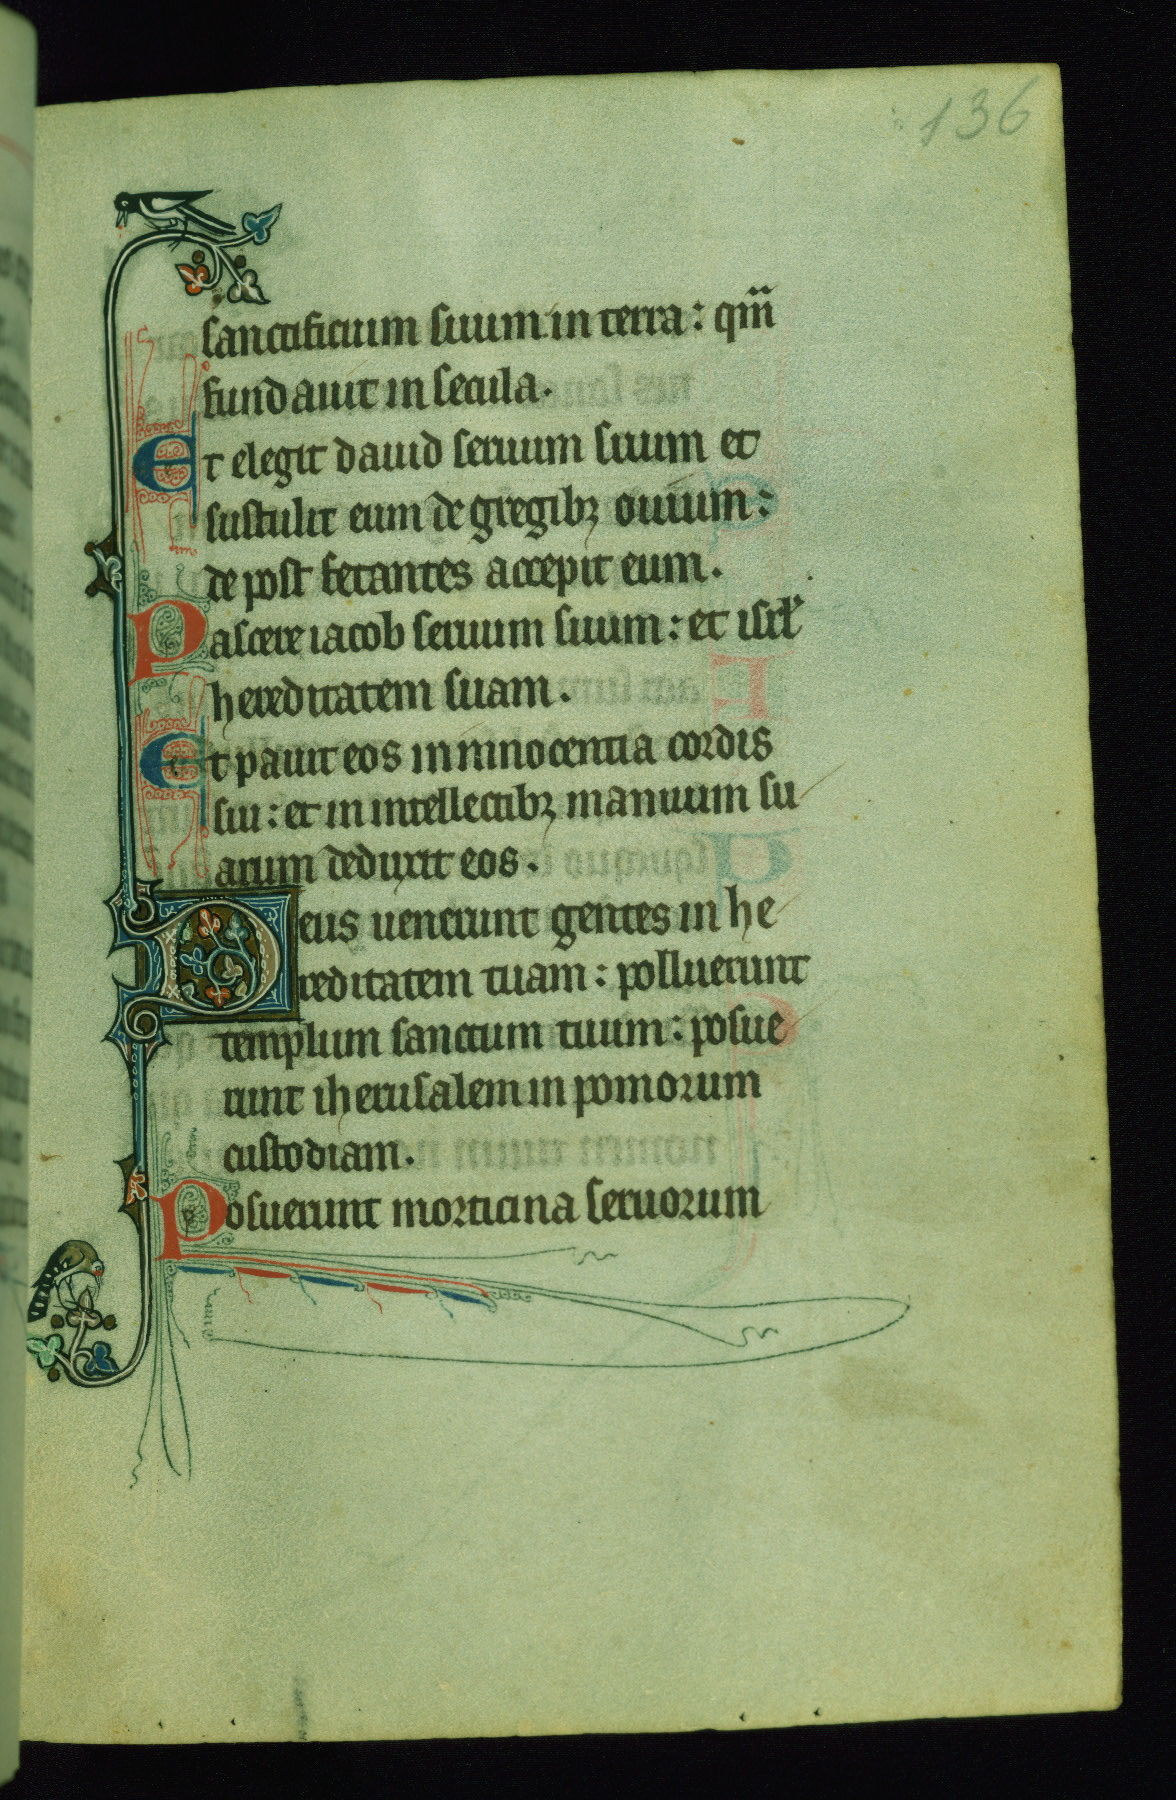 136
sanctificium suum in terra: qm̄
fundauit in secula.
Et elegit dauid seruum suum et
sustulit eum de gregibꝫ ouium:
de post fetantes accepit eum.
Pascere iacob seruum suum: et isrl̄
hereditatem suam.
Et pauit eos in innocentia cordis
sui: et in intellectibꝫ manuum su
arum deduxit eos.
Deus uenerunt gentes in he
reditatem tuam: polluerunt
templum sanctum tuum: posue
runt iherusalem in pomorum
custodiam.
Posuerunt morticina seruorum